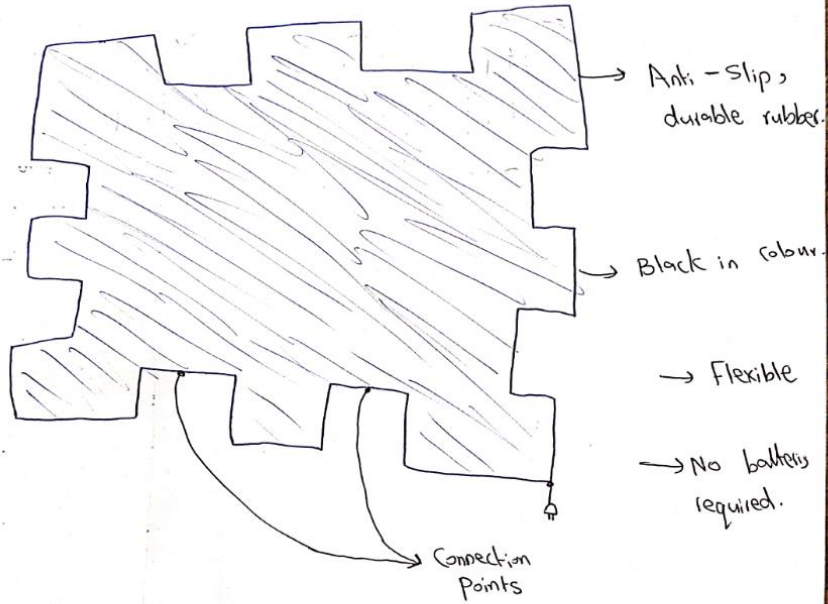 Anti-Slip,
durable rubber.
Black in colour.
Flexible
No battery
required.
Connection
Points